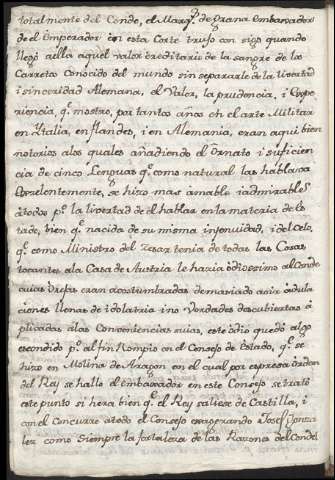 totalmente del Conde, el Marq.s de Grana Embaxador
de el Emperador en esta Corte truxo con sigo quando
llego a ella aquel valor ereditario de la sangre de los
Carretos Conocido del mundo sin separarle de la libertad
i sinceridad Alemana, el Valor, la prudencia, i Expe
riencia q.e mostro, por tantos años en el arte Militar
en Ytalia, en flandes, i en Alemania, eran aqui bien
notorios a los quales añadiendo el Ornato i suficien
cia de cinco Lenguas q.e como natural las hablava
Exelentemente, se hizo mas amable i admirable
a todos p.r la libertad de el hablar en la materia de es
tado, bien q.e nacida de su misma ingenuidad, i del celo,
q.e como Ministro del Zesar tenia de todas las Cosas
tocantes a la Casa de Austria le hacia odiosissimo al Conde
cuias Orejas eran acostumbradas demasiado a oir adula
ciones llenas de idolatria i no Verdades descubiertas a
plicadas a las Conveniencias suias, este odio quedo algo
escondido p.o al fin Rompio en el Consejo de Estado, q.e se
hizo en Molina de Aragon en el cual por expresa orden
del Rey se hallo el embaxador en este Consejo se trato
este punto si hera bien q.e el Rey saliese de Castilla, i
con el Concurre a todo el Consejo exagerando Josef Gonza
lez como Siempre la fortaleza de las Razones del Conde